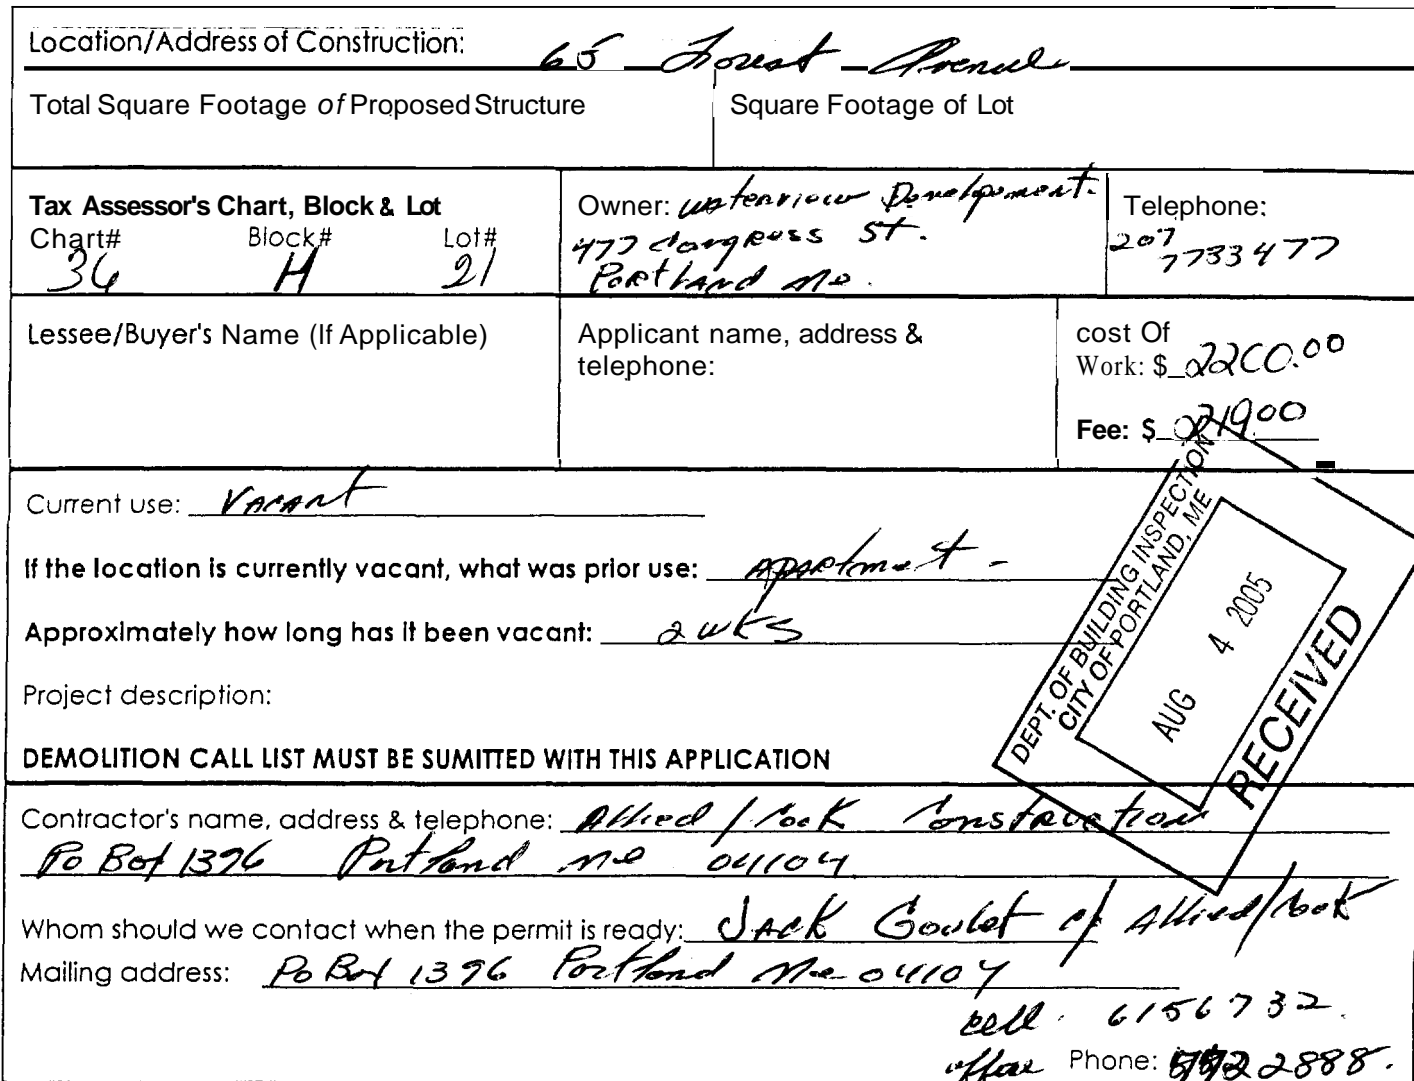 Location/Address of Construction: 65 Forest Avenue
Total Square Footage of Proposed Structure
Square Footage of Lot
Tax Assessor's Chart, Block & Lot
Chart# Block# Lot#
36 H 21
Owner: Waterview Development.
477 Congress St.
Portland Me.
Telephone:
207
7733477
Lessee/Buyer's Name (If Applicable)
Applicant name, address &
telephone:
cost Of
Work: $ 2200.00
Fee: $ 219.00
Current use: Vacant
If the location is currently vacant, what was prior use: Apartment -
Approximately how long has it been vacant: 2 wks
Project description:
DEMOLITION CALL LIST MUST BE SUMITTED WITH THIS APPLICATION
DEPT. OF BUILDING INSPECTION
CITY OF PORTLAND, ME
AUG 4 2005
RECEIVED
Contractor's name, address & telephone: Allied / Cook Construction
Po Box 1396 Portland Me 04104
Whom should we contact when the permit is ready: Jack Goulet c/ Allied/Cook
Mailing address: Po Box 1396 Portland Me 04104
cell. 6156732.
office Phone: 2888.